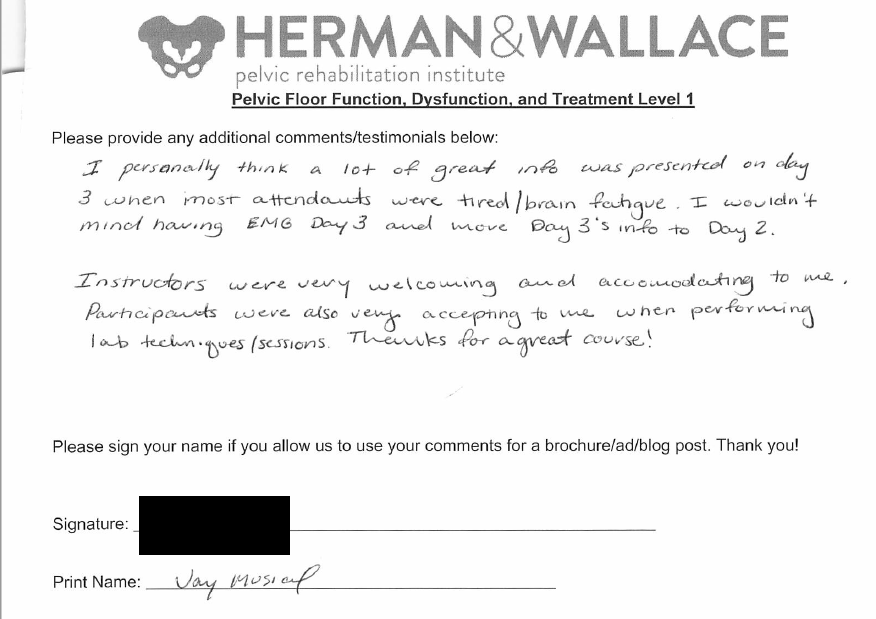 HERMAN&WALLACE
pelvic rehabilitation institute
Pelvic Floor Function, Dysfunction, and Treatment Level 1
Please provide any additional comments/testimonials below:
I personally think a lot of great info was presented on day
3 when most attendants were tired/brain fatigue. I wouldn't
mind having EMG Day 3 and move Day 3's info to Day 2.
Instructors were very welcoming and accomodating to me.
Participants were also very accepting to me when performing
lab techniques/sessions. Thanks for a great course!
Please sign your name if you allow us to use your comments for a brochure/ad/blog post. Thank you!
Signature:
Print Name: Jay Musial